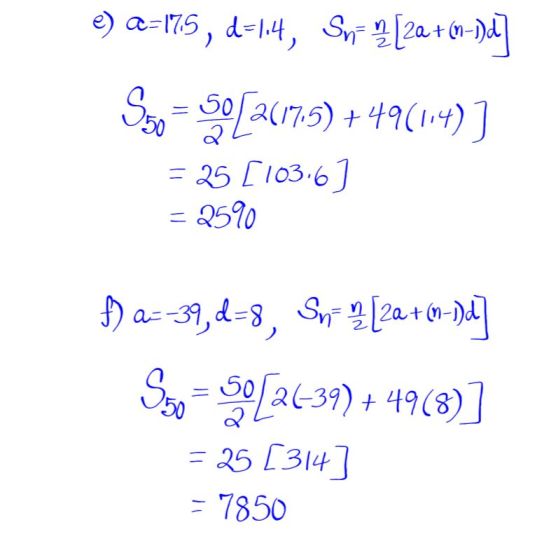 e) a=17.5, d=1.4, Sn=n/2[2a+(n-1)d]
S50=50/2[2(17.5)+49(1.4)]
=25[103.6]
=2590
f) a=-39,d=8, Sn=n/2[2a+(n-1)d]
S50=50/2[2(-39)+49(8)]
=25[314]
=7850